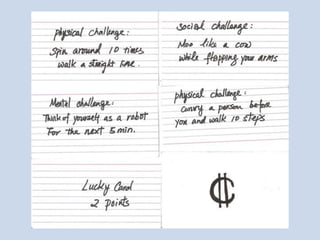 physical challenge:
Spin around 10 times
walk a straight line.
Social challenge:
Moo like a cow
while flapping your arms
Mental challenge:
Think of yourself as a robot
For the next 5 min.
physical challenge:
carry a person before
you and walk 10 steps
Lucky Card
2 points